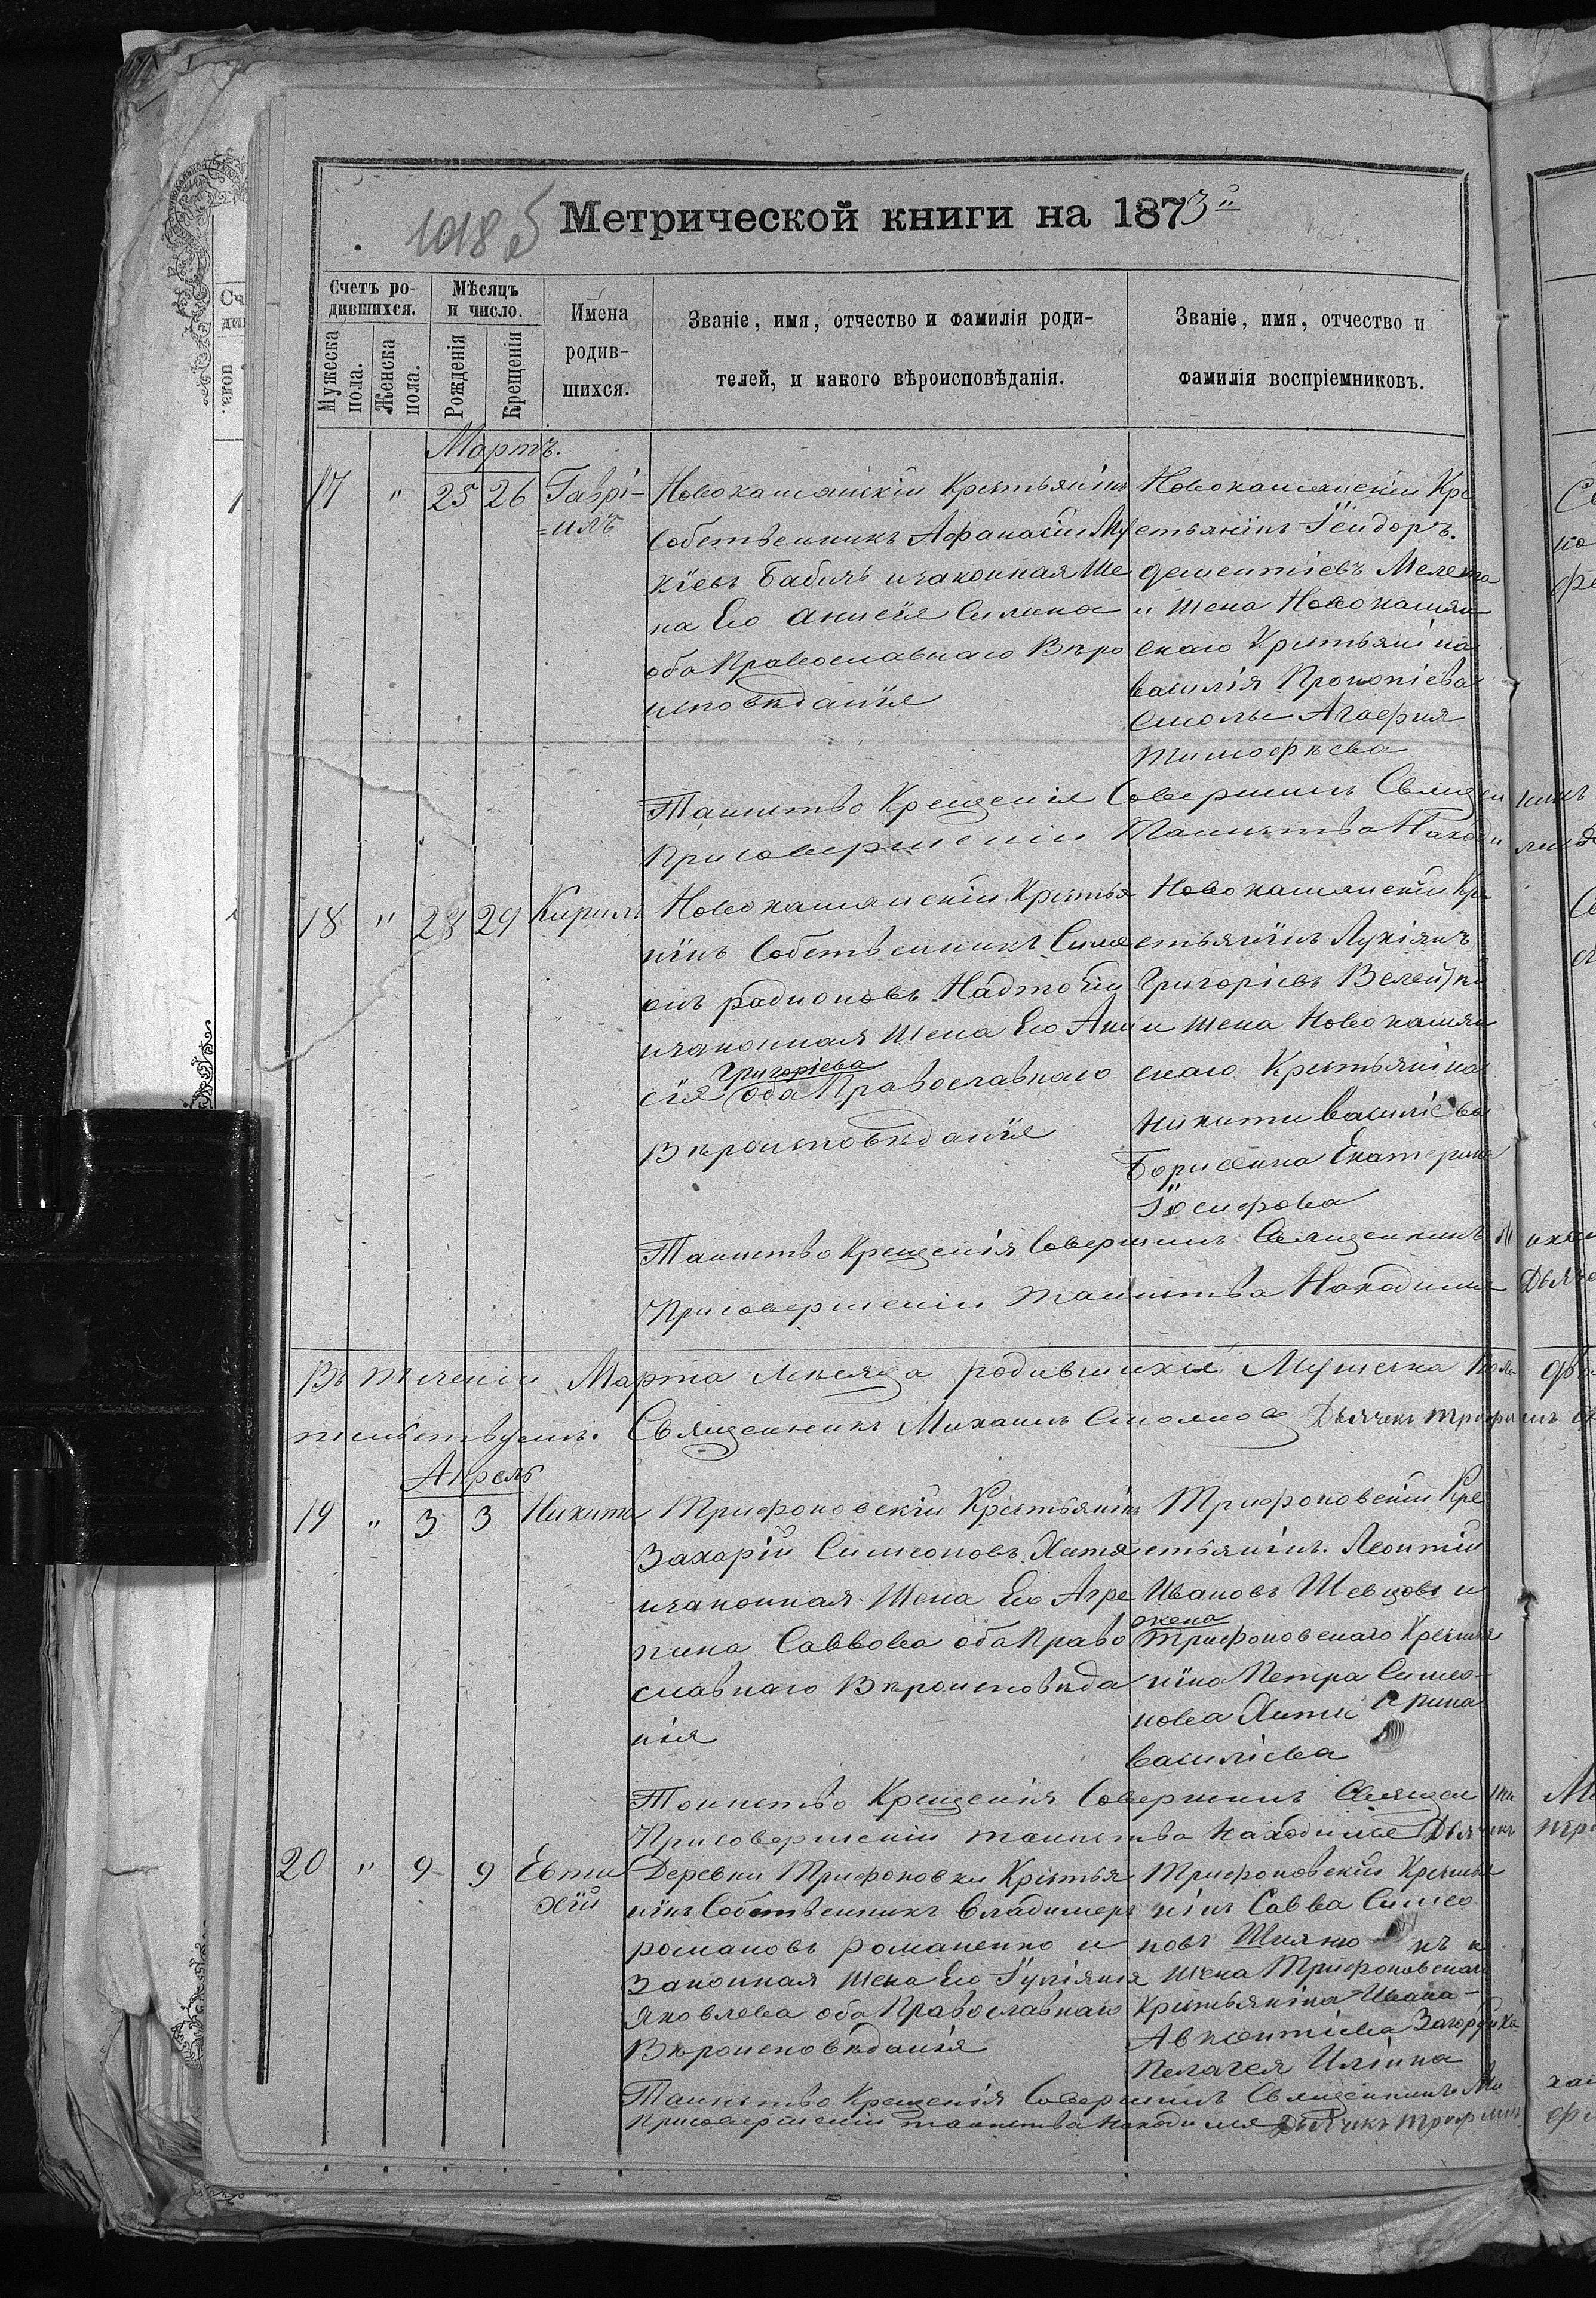 1018
Метрической книги на 1873й
Счетъ ро-
дившихся.
Мѣсяцъ
и число.
Имена
родив-
шихся.
Званіе, имя, отчество и фамилія роди-
телей, и какого вѣроисповѣданія.
Званіе, имя, отчество и
фамилія воспріемниковъ.
Мужеска
пола.
Женска
пола.
Рожденія
Крещенія
Мартъ.
17 " 25 26 Гаврі-
=илъ
Новокашанскій Крестьянинъ
Собственникъ Афанасій Му
кіевъ Бабичъ и законная Же
на Его Анисія Силина
оба Православнаго Вѣро
исповѣданія
Новокашанскій Кре
стьянинъ
дементіевъ
и Жена Новокашан
скаго Крестьянина
василія Прокопіева
Агафия
тимофѣева
Таинство Крещенія Совершилъ Священ
При совершеніи Таинства Находи
18 " 28 29 Кирилъ
Новокашанскій Крестья
нинъ Собственникъ Симе
онъ родионовъ Надточій
и законная Жена Его Ани
сія Григоріева оба Православнаго
Вѣроисповѣданія
Новокашанскій Кре
стьянинъ Лукіянъ
Григоріевъ
и жена Новокашан
скаго Крестьянина
никити василіева
Екатерина
Іосифова
Таинство Крещенія Совершилъ Священникъ Ми
При совершеніи таинства Находился
Въ теченіи Марта мѣсяца родившихся Мужеска пола
тельствуемъ. Священникъ Михаилъ Дьячекъ трофимъ
Апрель
19 " 3 3 Никита
Трифоновскій Крестьянинъ
Захарій Симеоновъ
и законная Жена Его Агре
пина Саввова оба Право
славнаго Вѣроисповѣда
нія
Трифоновскій Кре
стьянинъ. Леонтій
Ивановъ Шевцовъ и
жена трифоновскаго Крестья
нина Петра Симео-
нова
василіева
Таинство Крещенія Совершилъ Священ
При совершеніи таинства находился Дьячекъ
20 " 9 9 Евти
хій
Деревни Трифоновки Крестья
нинъ Собственникъ Владимеръ
романовъ романенко и
Законная Жена Его Іуліянія
Яковлева оба Православнаго
Вѣроисповѣданія
Трифоновскій Крестья
нинъ Савва Симео
новъ
жена Трифоновскаго
Крестьянина Ивана
Авксентіева
Пелагея Иліина
Таинство Крещенія Совершилъ Священникъ Ми
При совершеніи таинства находился Дьячекъ трофимъ